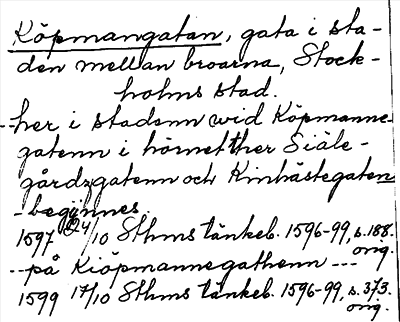 Köpmangatan, gata i sta-
den mellan broarna, Stock-
holms stad.
--her i stadenn wid Köpmanne-
gatenn i hörnet ther Siäle-
gårdzgatenn och Kinhästegaten
- begÿnnes
1597 24/10 Sthms tänkeb. 1596-99, s. 188.
orig.
--- på Kiöpmannegathenn ---
1599 17/10 Sthms tänkeb. 1596-99, s. 373.
orig.